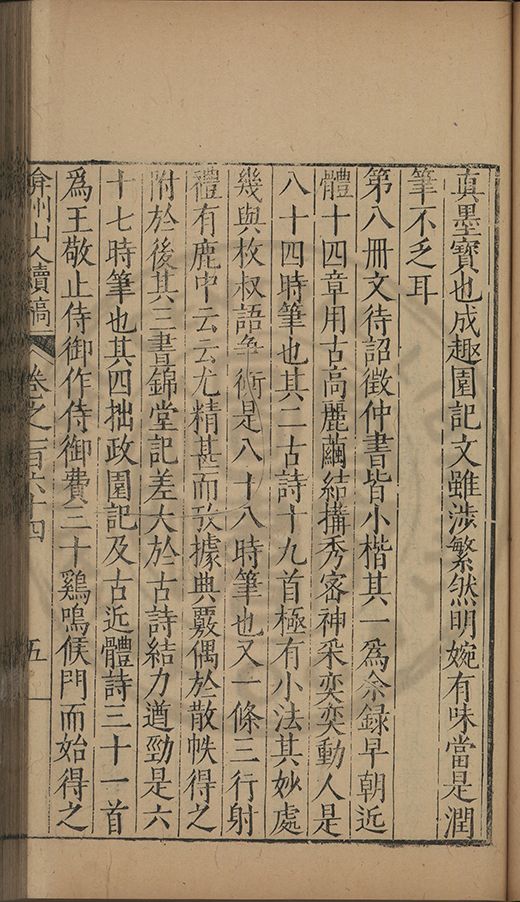 真墨寶也成趣園記文雖涉繁然明婉有味當是潤
筆不乏耳
第八冊文待詔徵仲書皆小楷其一為余録早朝近
體十四章用古高麗繭結搆秀宻神采奕奕動人是
八十四時筆也其二古詩十九首極有小法其妙處
幾與枚叔語爭衡是八十八時筆也又一條三行射
禮有鹿中云云尤精甚而攷據典覈偶於散帙得之
附於後其三書錦堂記差大於古詩結力遒勁是六
十七時筆也其四拙政園記及古近體詩三十一首
爲王敬止侍御作侍御費三十鷄鳴候門而始得之
弇州山人續稿 卷之一百六十四 五